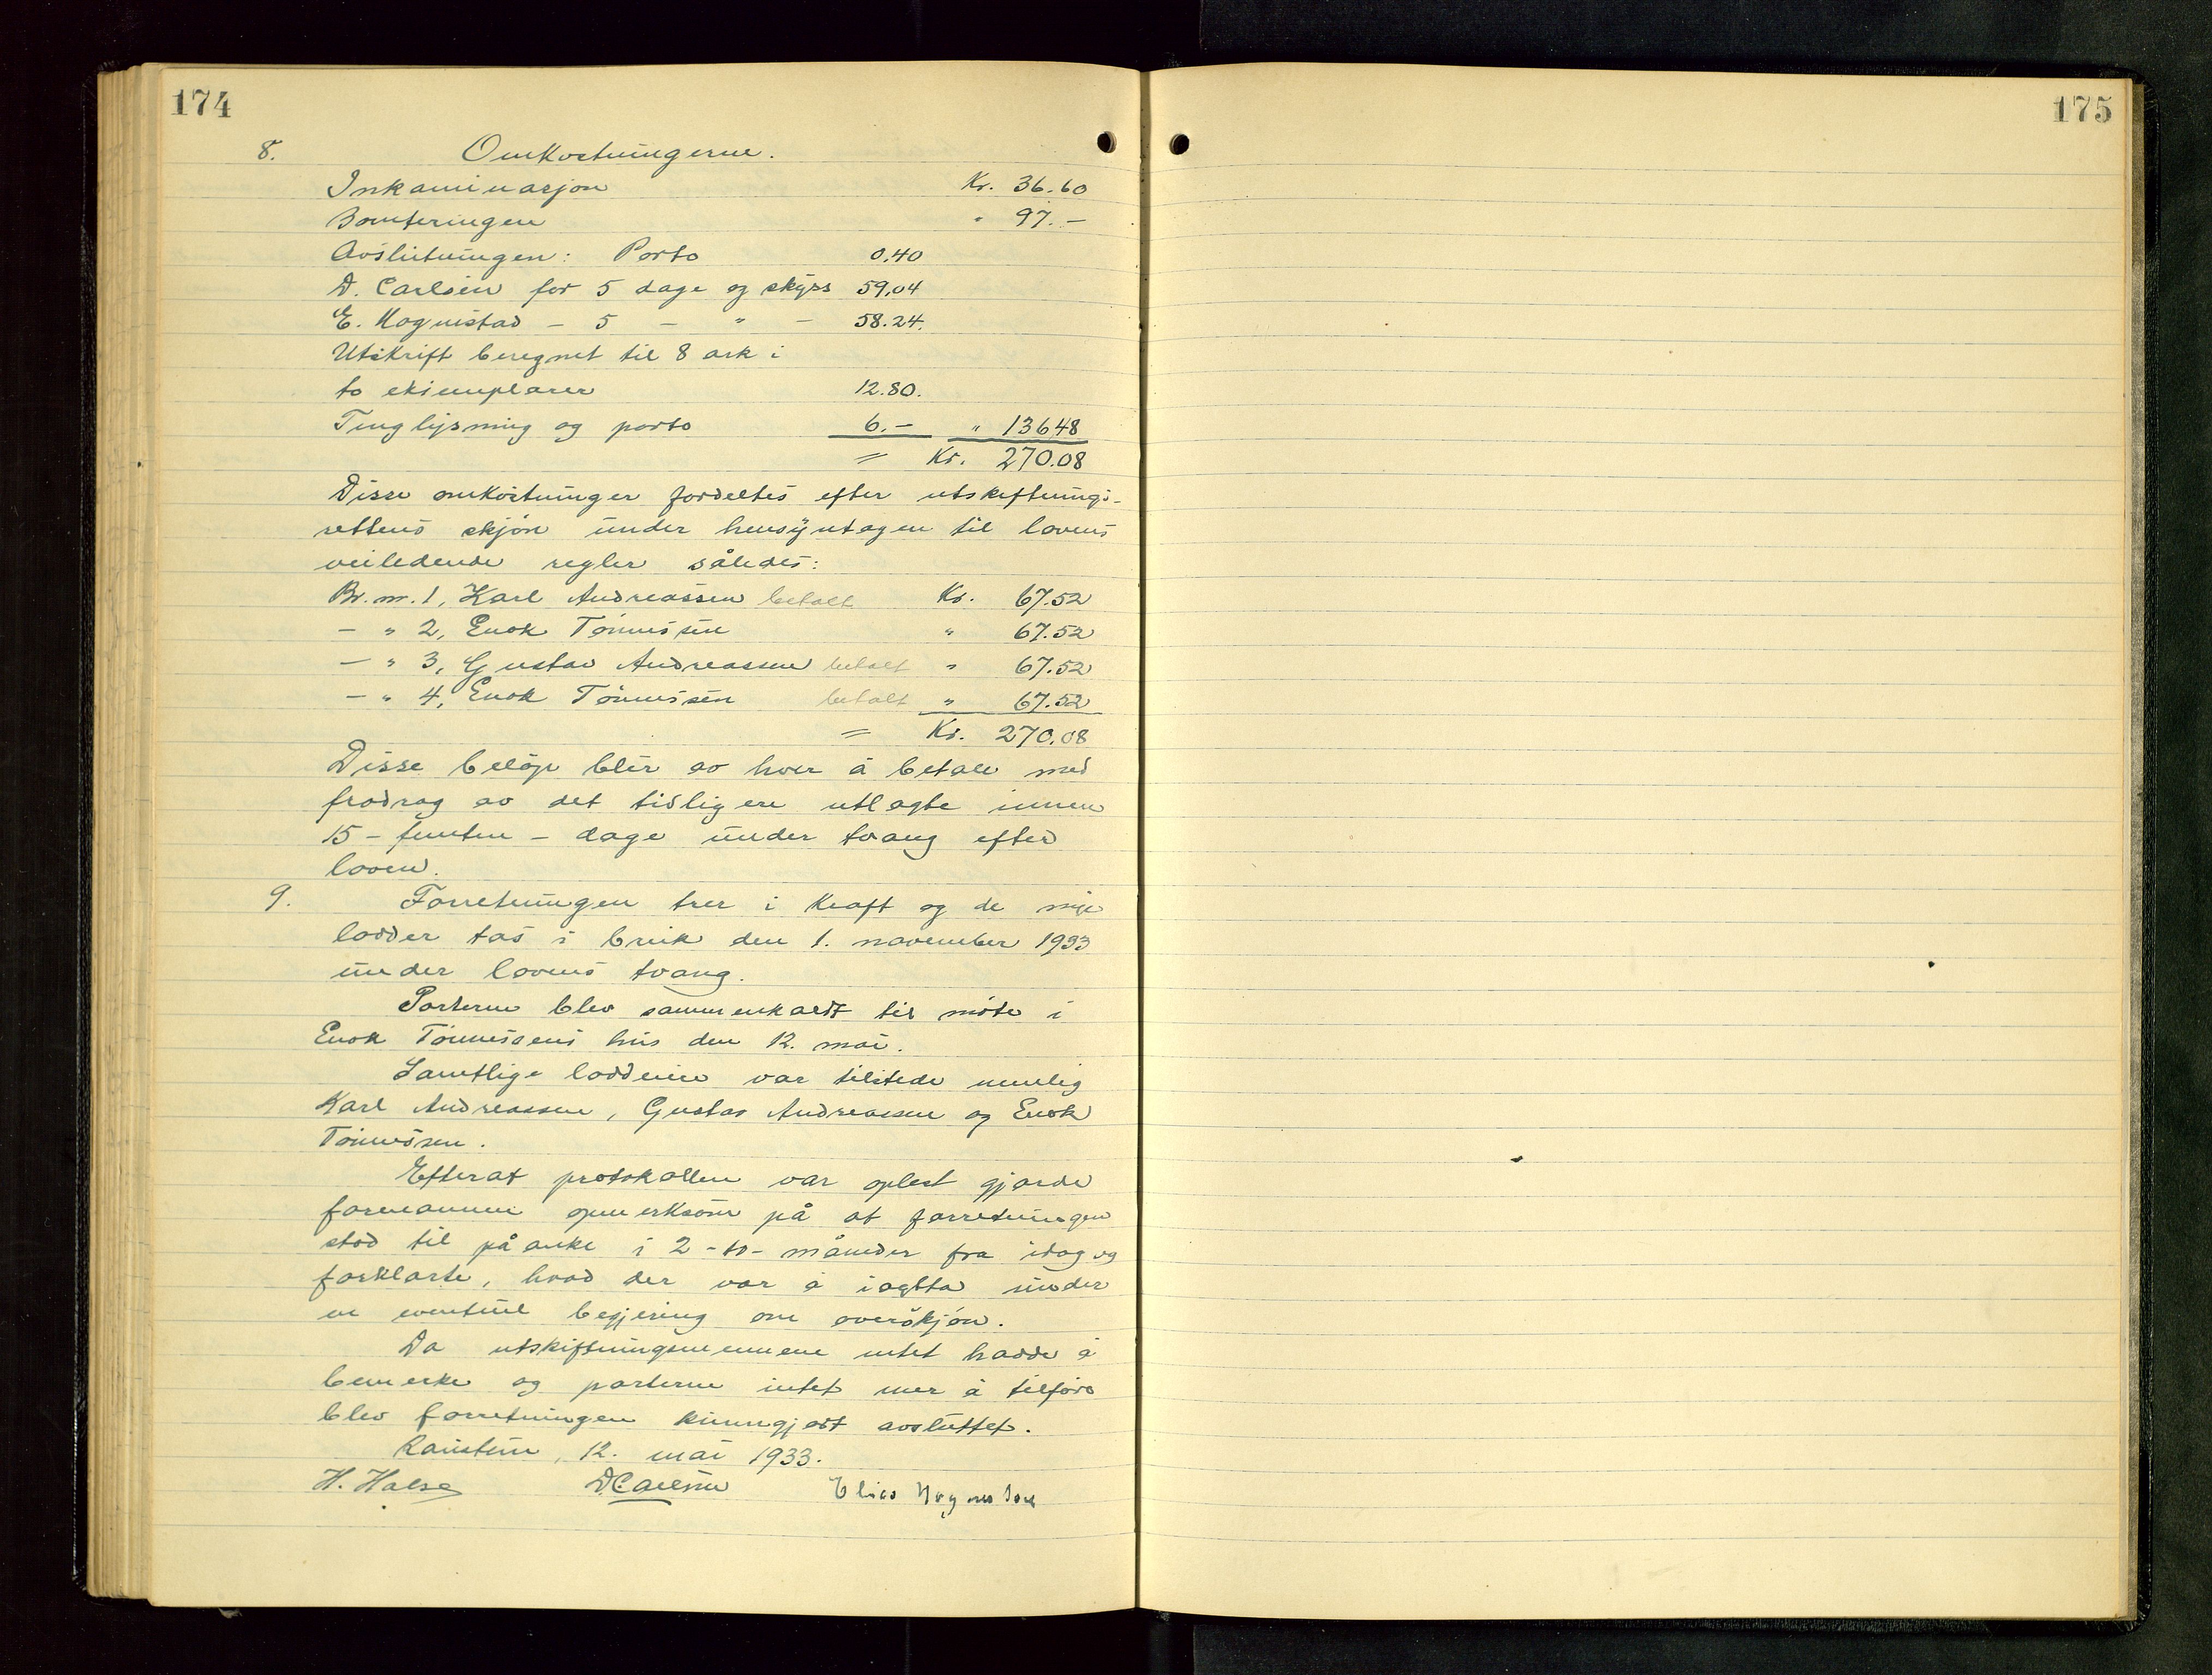 174
8. Omkostningerne.
Inkaminasjon Kr. 36.60
Bonteringen " 97.-
Avslutningen: Porto 0.40
D. Carlsen for 5 dage og skyss 59.04
E. Mognistad - 5 - " - 58.24.
Utskrift beregnet til 8 ark i
to eksemplarer 12.80.
Tinglysning og porto 6.- " 136.48
= Kr. 270.08
Disse omkostninger fordeltes efter utskiftnings-
rettens skjøn under hensyntagen til lovens
veiledende regler således:
Br. nr. 1, Karl Andreassen betalt Kr. 67.52
- " 2, Enok Tönnessen " 67.52
- " 3, Gustav Andreassen betalt " 67.52
- " 4, Enok Tönnessen betalt " 67.52
= Kr. 270.08
Disse beløp blir av hver å betale med
fradrag av det tidligere utlagte innen
15 - femten - dage under tvang efter
loven.
9. Forretningen trer i kraft og de nye
lodder tas i bruk den 1. november 1933
under lovens tvang.
Parterne blev sammenkaldt til møte i
Enok Tönnessens hus den 12. mai.
Samtlige loddeiere var tilstede nemlig
Karl Andreassen, Gustav Andreassen og Enok
Tönnessen.
Efterat protokollen var oplest gjorde
formannen opmerksom på at forretningen
stod til påanke i 2 - to - måneder fra idag og
forklarte, hvad der var å iagtta under
en eventuel begjering om overskjøn.
Da utskiftningsmennene intet hadde å
bemerke og parterne intet mer å tilføre
blev forretningen kunngjort avsluttet.
12. mai 1933.
H. Halse D Carlsen Elias
175